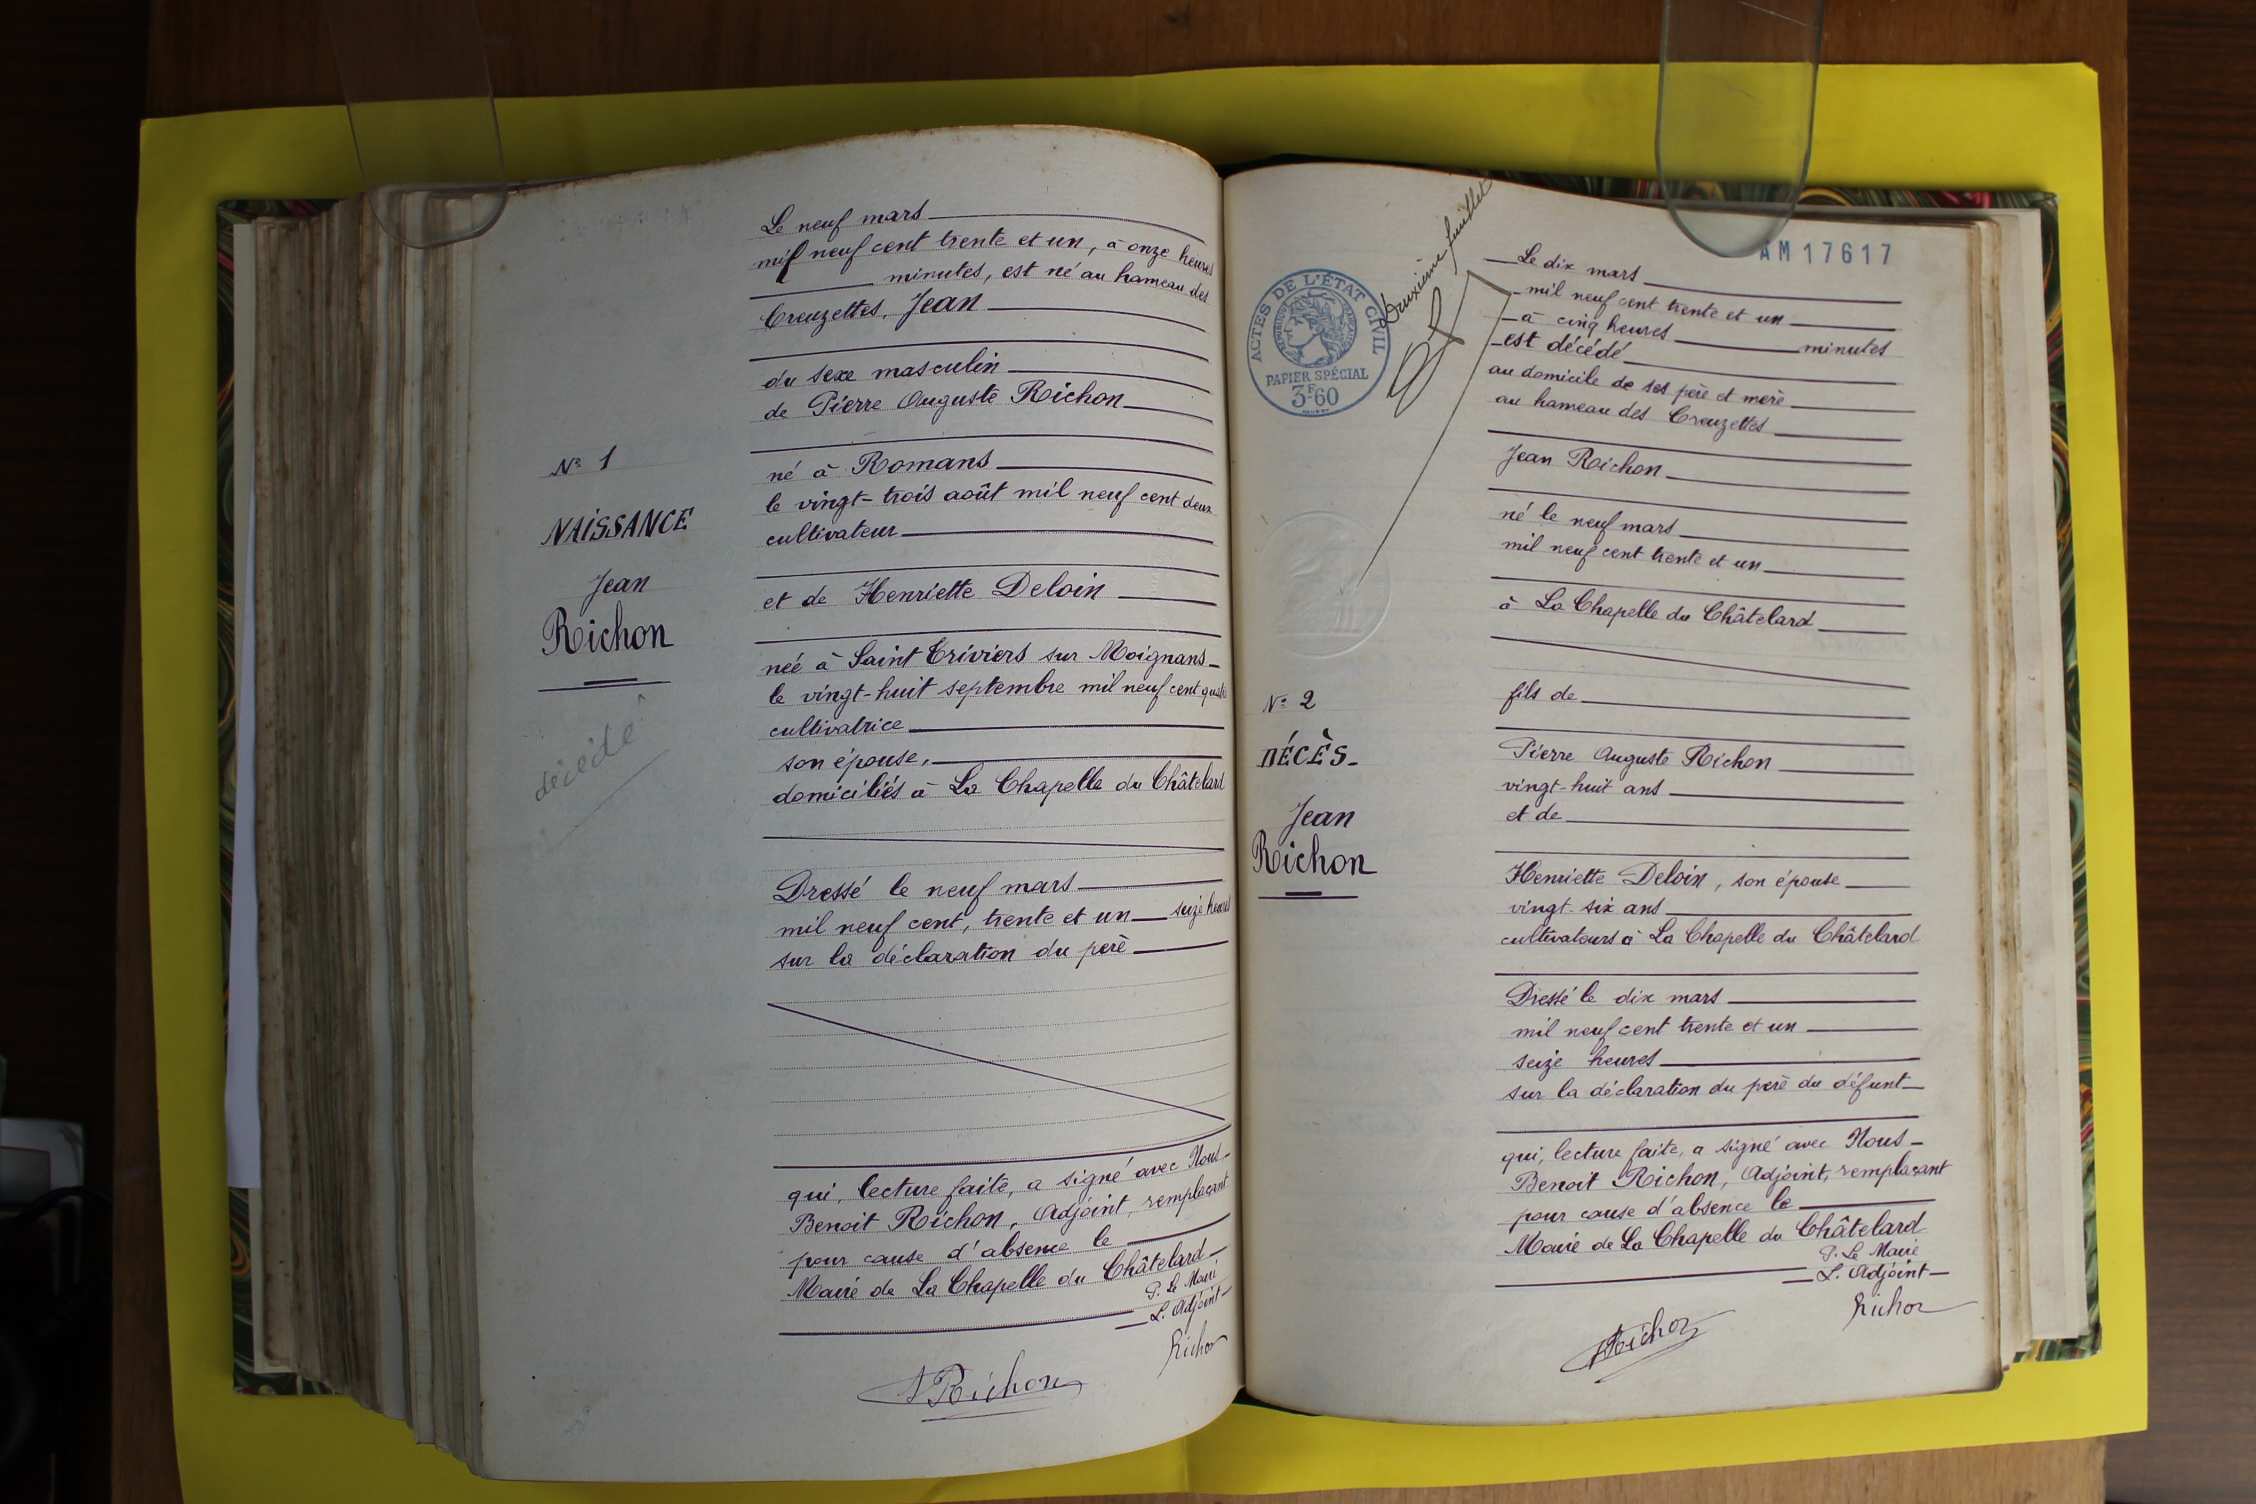 Nº 1
NAISSANCE
Jean
Richon
décédé
Le neuf mars
mil neuf cent trente et un, à onze heures
minutes, est né au hameau des
Creuzettes, Jean
du sexe masculin
de Pierre Auguste Richon
né à Romans
le vingt-trois août mil neuf cent deux
cultivateur
et de Henriette Deloin
née à Saint Triviers sur Moignans
le vingt-huit septembre mil neuf cent quatre
cultivatrice
son épouse,
domiciliés à La Chapelle du Châtelard
Dressé le neuf mars
mil neuf cent, trente et un seize heures
sur la déclaration du père
qui, lecture faite, a signé avec Nous
Benoit Richon, Adjoint, remplaçant
pour cause d'absence le
Maire de La Chapelle du Châtelard
P. Le Maire
L. Adjoint
Richon
Richon
Deuxième feuillet
ACTES DE L'ÉTAT CIVIL
RÉPUBLIQUE FRANÇAISE
PAPIER SPÉCIAL
3F60
AM17617
Nº 2
DÉCÈS
Jean
Richon
Le dix mars
mil neuf cent trente et un
à cinq heures minutes
est décédé
au domicile de ses père et mère
au hameau des Creuzettes
Jean Richon
né le neuf mars
mil neuf cent trente et un
à La Chapelle du Châtelard
fils de
Pierre Auguste Richon
vingt-huit ans
et de
Henriette Deloin, son épouse
vingt-six ans
cultivateurs à La Chapelle du Châtelard
Dressé le dix mars
mil neuf cent trente et un
seize heures
sur la déclaration du père du défunt
qui, lecture faite, a signé avec Nous
Benoit Richon, Adjoint, remplaçant
pour cause d'absence le
Maire de La Chapelle du Châtelard
P. Le Maire
L. Adjoint
Richon
Richon